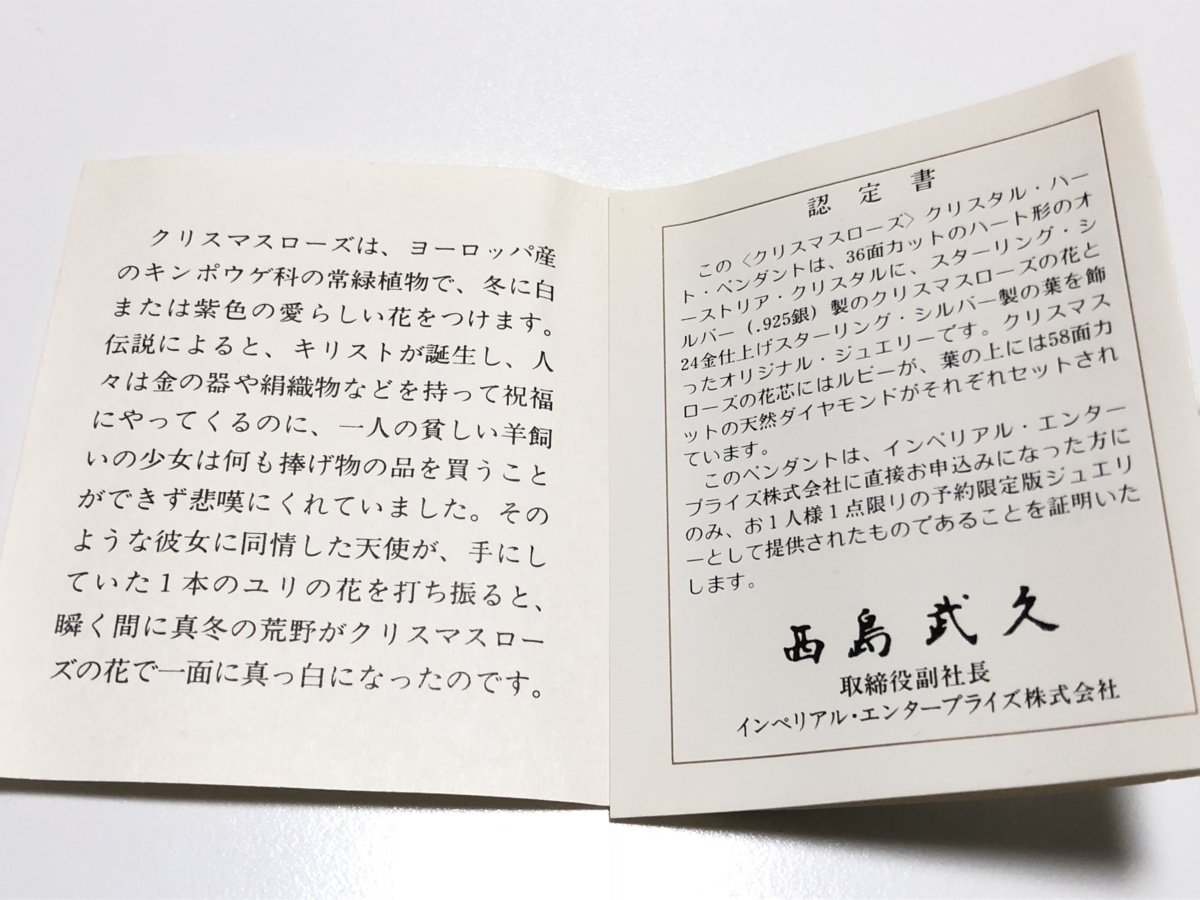 クリスマスローズは、ヨーロッパ産
のキンポウゲ科の常緑植物で、冬に白
または紫色の愛らしい花をつけます。
伝説によると、キリストが誕生し、人
々は金の器や絹織物などを持って祝福
にやってくるのに、一人の貧しい羊飼
いの少女は何も捧げ物の品を買うこと
ができず悲嘆にくれていました。その
ような彼女に同情した天使が、手にし
ていた1本のユリの花を打ち振ると、
瞬く間に真冬の荒野がクリスマスロー
ズの花で一面に真っ白になったのです。
認定書
この〈クリスマスローズ〉クリスタル・ハー
ト・ペンダントは、36面カットのハート形のオ
ーストリア・クリスタルに、スターリング・シ
ルバー(.925銀)製のクリスマスローズの花と
24金仕上げスターリング・シルバー製の葉を飾
ったオリジナル・ジュエリーです。クリスマス
ローズの花芯にはルビーが、葉の上には58面カ
ットの天然ダイヤモンドがそれぞれセットされ
ています。
このペンダントは、インペリアル・エンター
プライズ株式会社に直接お申込みになった方に
のみ、お1人様1点限りの予約限定版ジュエリ
ーとして提供されたものであることを証明いた
します。
西島武久
取締役副社長
インペリアル・エンタープライズ株式会社